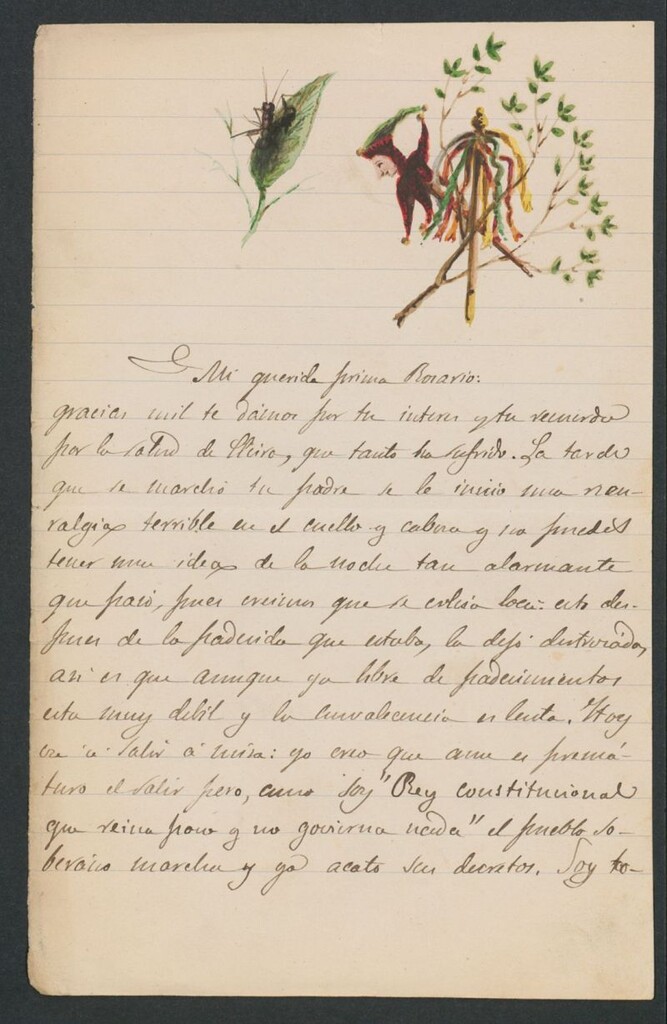 Mi querida prima Rosario:
gracias mil te damos por tu interes y tu recuerdo
por la salud de que tanto ha sufrido. La tarde
que se marchó tu padre se le inició una neu-
ralgia terrible en el cuello y cabeza y no puedes
tener una idea de la noche tan alarmante
que pasó, pues creimos que se volvia loca: esto des-
pues de lo padecida que estaba, la dejó destrozada,
asi es que aunque ya libre de padecimientos
esta muy debil y la convalecencia es lenta. Hoy
va á salir á misa: yo creo que aun es premá-
turo el salir pero, como soy "Rey constitucional
que reina poco y no govierna nada" el pueblo so-
berano marcha y yo acato sus decretos. Soy to-